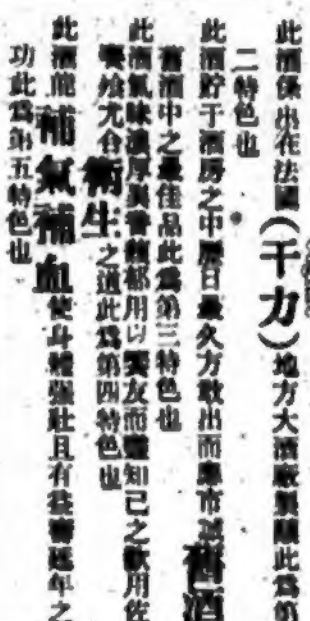 此酒係出在法國(干力)地方大酒廠製釀此爲第
二特色也
此酒貯于酒房之中歷日最久方敢出而應市誠舊酒
舊酒中之最佳品此爲第三特色也
此酒氣味濃厚異香馥郁用以饗友而聯知己之歡用佐
饗飧尤合衛生之道此爲第四特色也
此酒能補氣補血使身體强壯且有益壽延年之
功此爲第五特色也